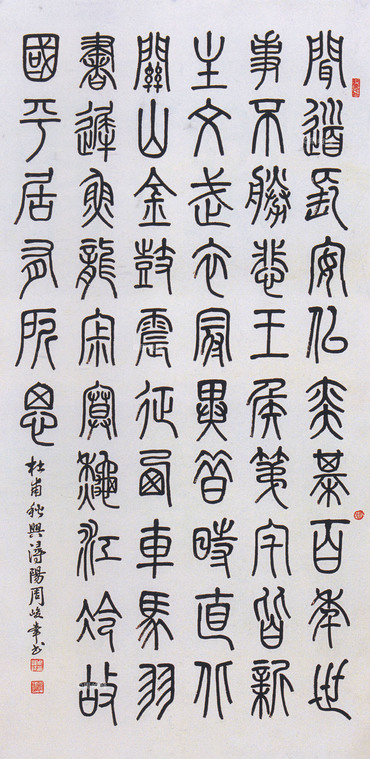 聞道長安似弈棋百年世
事不勝悲王侯第宅皆新
主文武衣冠異昔時直北
關山金鼓震征西車馬羽
書遲魚龍寂寞秋江冷故
國平居有所思
杜甫秋興潯陽周峻書